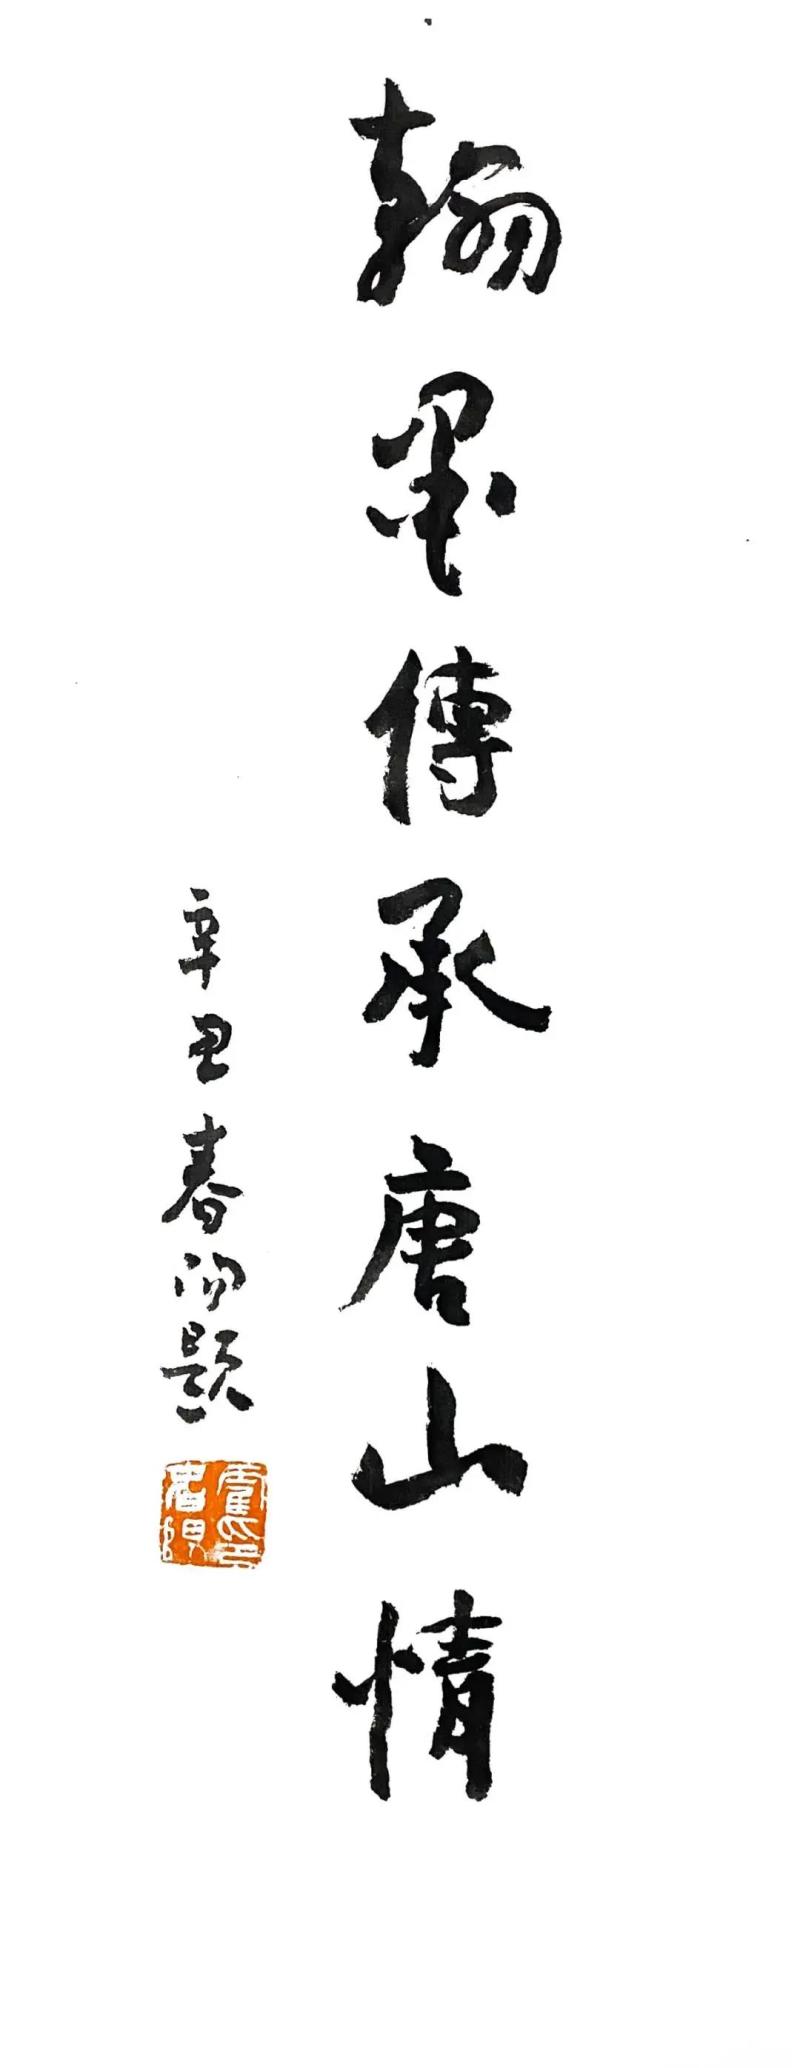 翰墨傳承唐山情
辛丑春陽題